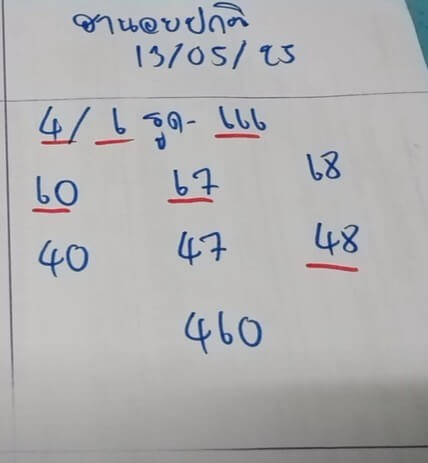 ฮานอยปกติ
13/05/25
4/6 รูด- 666
60 67 68
40 47 48
460